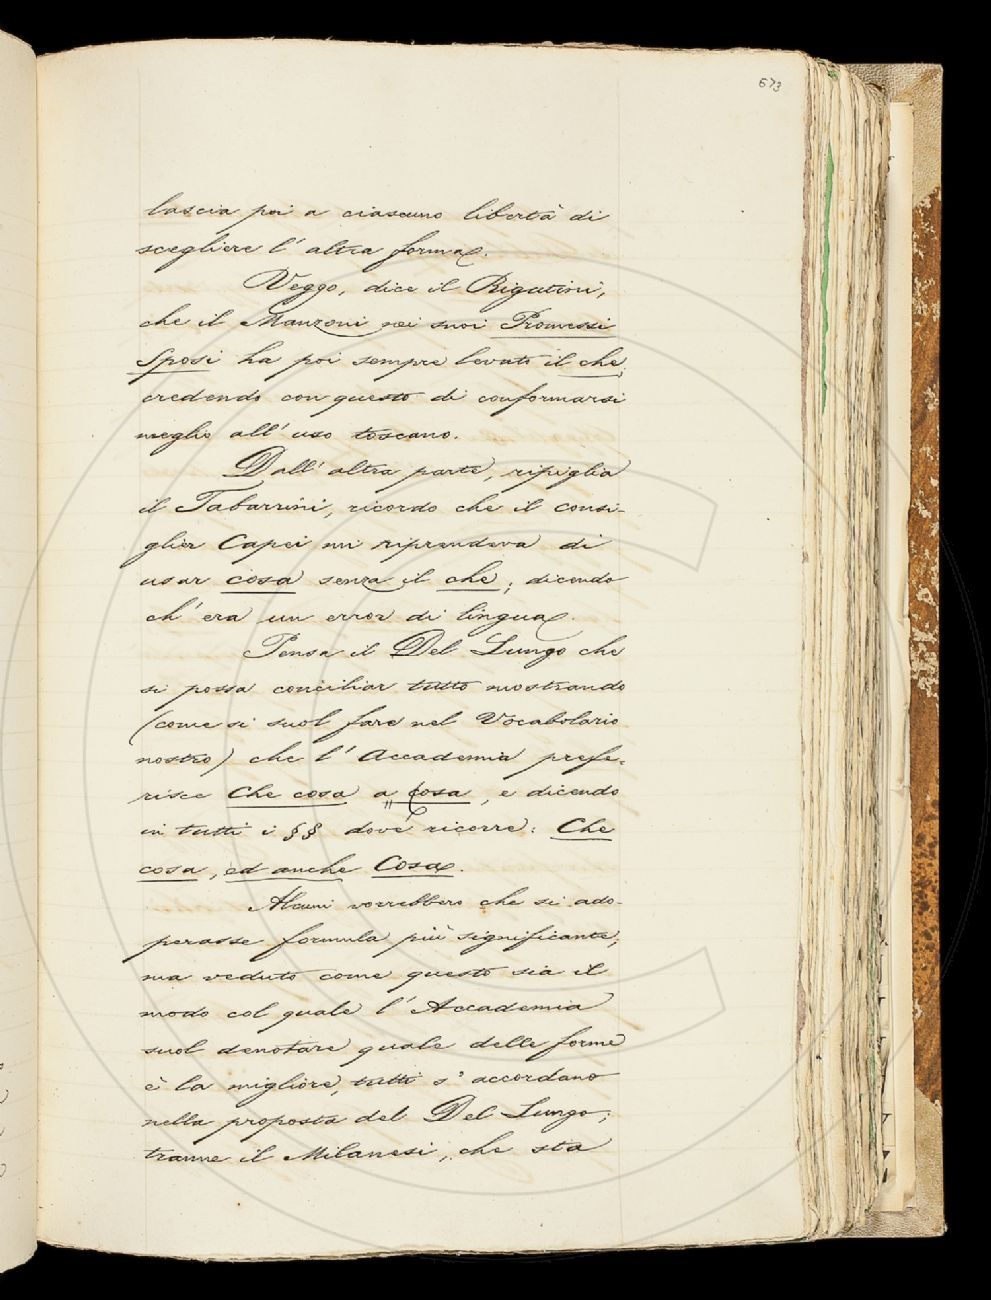 673
lascia poi a ciascuno libertà di
scegliere l'altra forma.
Veggo, dice il Rigutini,
che il Manzoni nei suoi Promessi
Sposi ha poi sempre levato il che,
credendo con questo di conformarsi
meglio all'uso toscano.
Dall'altra parte, ripiglia
il Tabarrini, ricordo che il consi-
glier Capei mi riprendeva di
usar cosa senza il che, dicendo
ch'era un error di lingua.
Pensa il Del Lungo che
si possa conciliar tutto mostrando
(come si suol fare nel Vocabolario
nostro) che l'Accademia prefe-
risce Che cosa a Cosa, e dicendo
in tutti i §§ dove ricorre: Che
cosa, ed anche Cosa.
Alcuni vorrebbero che si ado-
perasse formula più significante;
ma veduto come questo sia il
modo col quale l'Accademia
suol denotare quale delle forme
è la migliore, tutti s'accordano
nella proposta del Del Lungo;
tranne il Milanesi, che sta